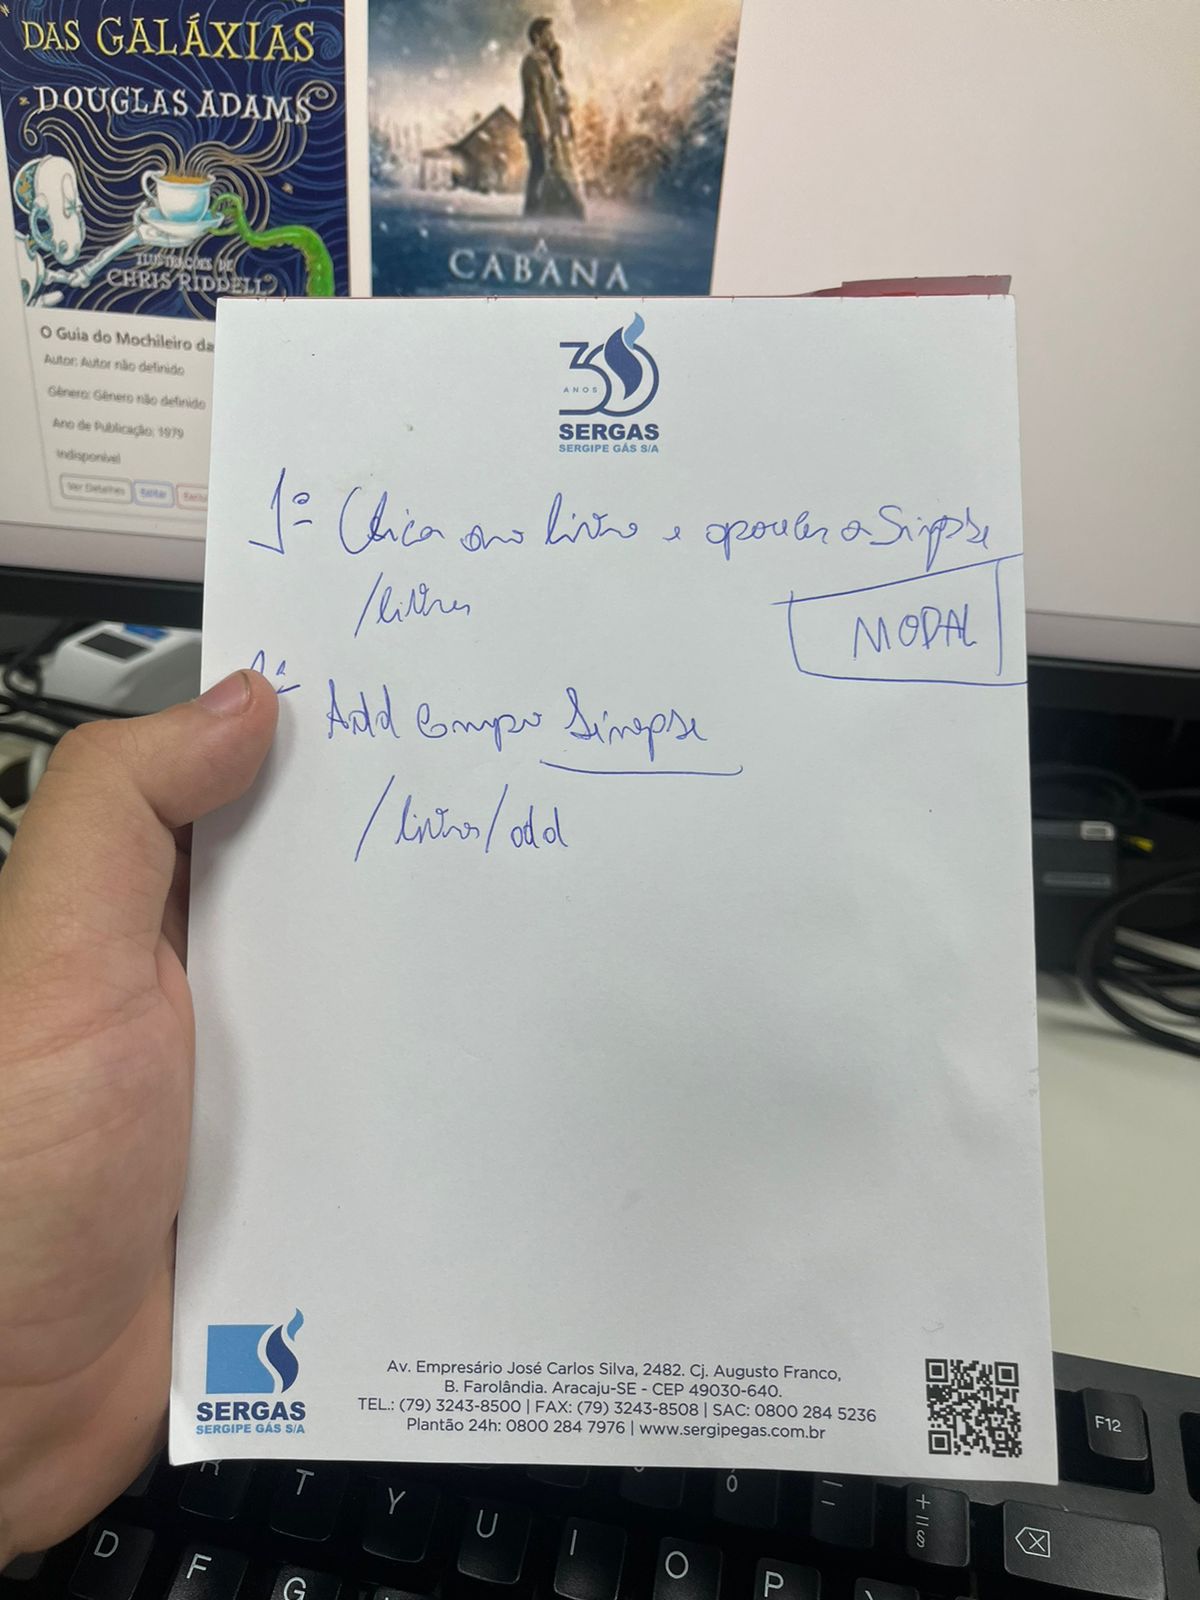 DAS GALÁXIAS
DOUGLAS ADAMS
ILUSTRAÇÕES DE
CHRIS RIDDELL
A
CABANA
O Guia do Mochileiro da
Autor: Autor não definido
Gênero: Gênero não definido
Ano de Publicação: 1979
Indisponível
Ver Detalhes Editar
30
ANOS
SERGAS
SERGIPE GÁS S/A
1º Clica no livro e aparecer a Sinopse
/livros
MODAL
Add Campo Sinopse
/livros/add
SERGAS
SERGIPE GÁS S/A
Av. Empresário José Carlos Silva, 2482. Cj. Augusto Franco,
B. Farolândia. Aracaju-SE - CEP 49030-640.
TEL.: (79) 3243-8500 | FAX: (79) 3243-8508 | SAC: 0800 284 5236
Plantão 24h: 0800 284 7976 | www.sergipegas.com.br
F12
R T Y U I O P
D F G